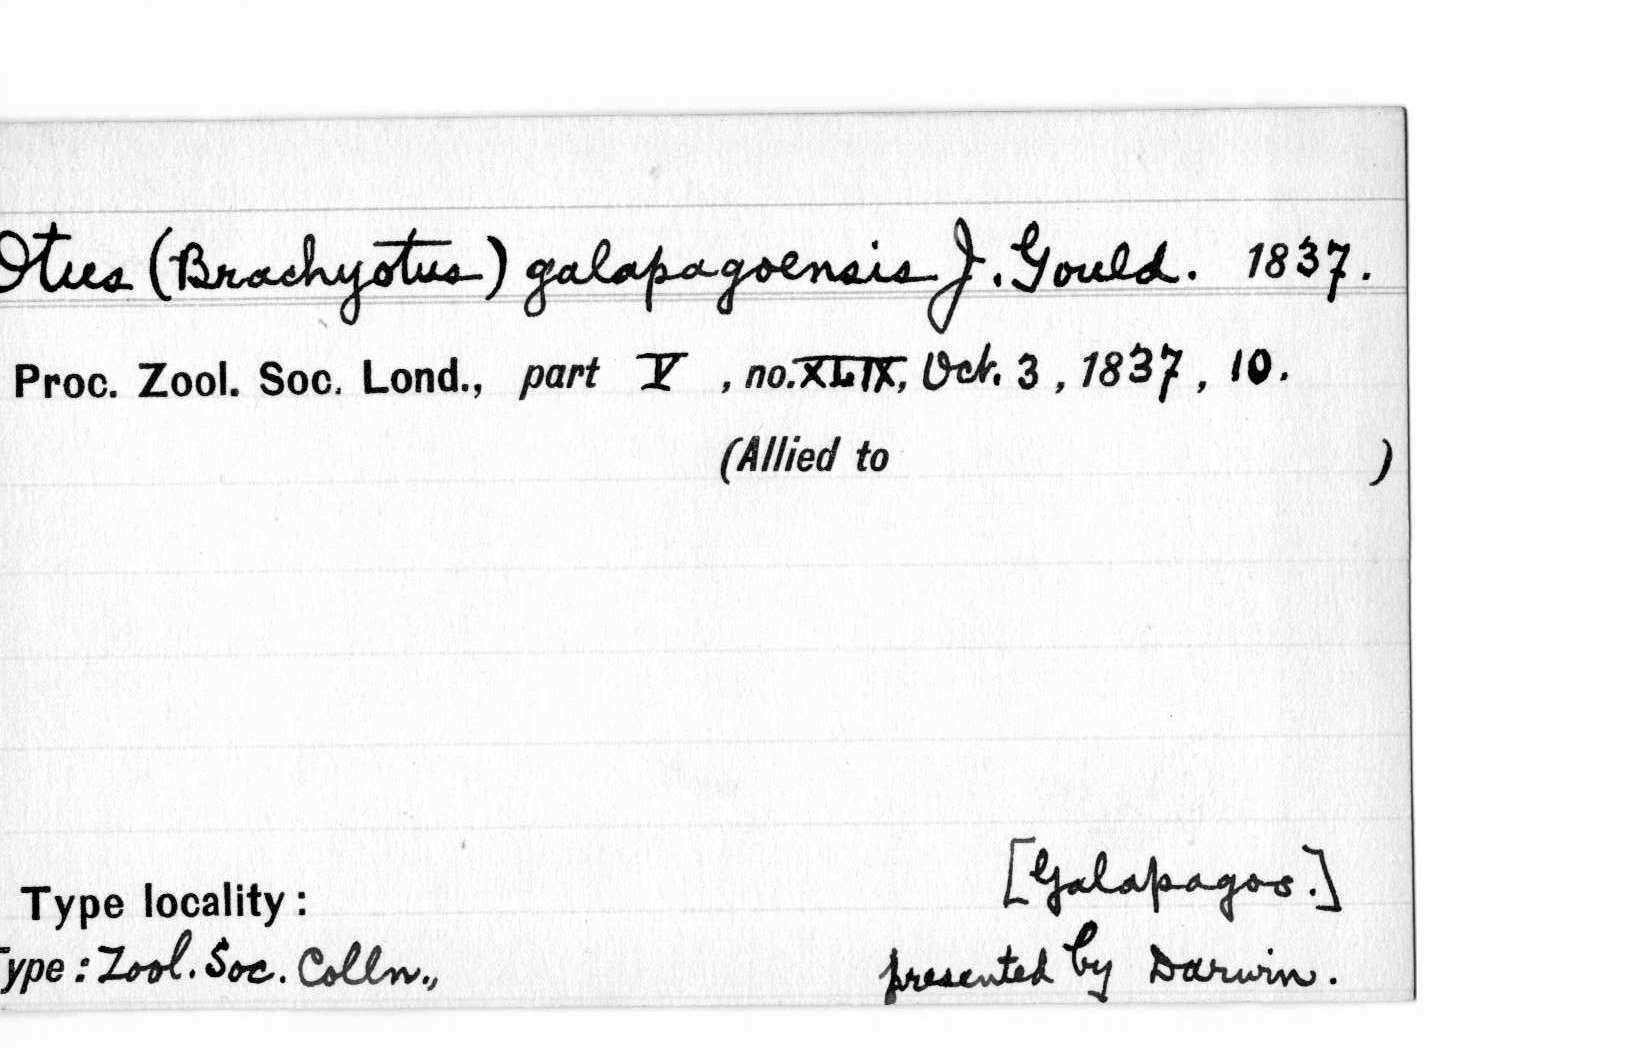 Otus (Brachyotus) galapagoensis J. Gould. 1837.
Proc. Zool. Soc. Lond., part V , no. XLIX, Oct. 3 , 1837 , 10.
(Allied to )
[Galapagos.]
Type locality:
Type: Zool. Soc. Colln., presented by Darwin.